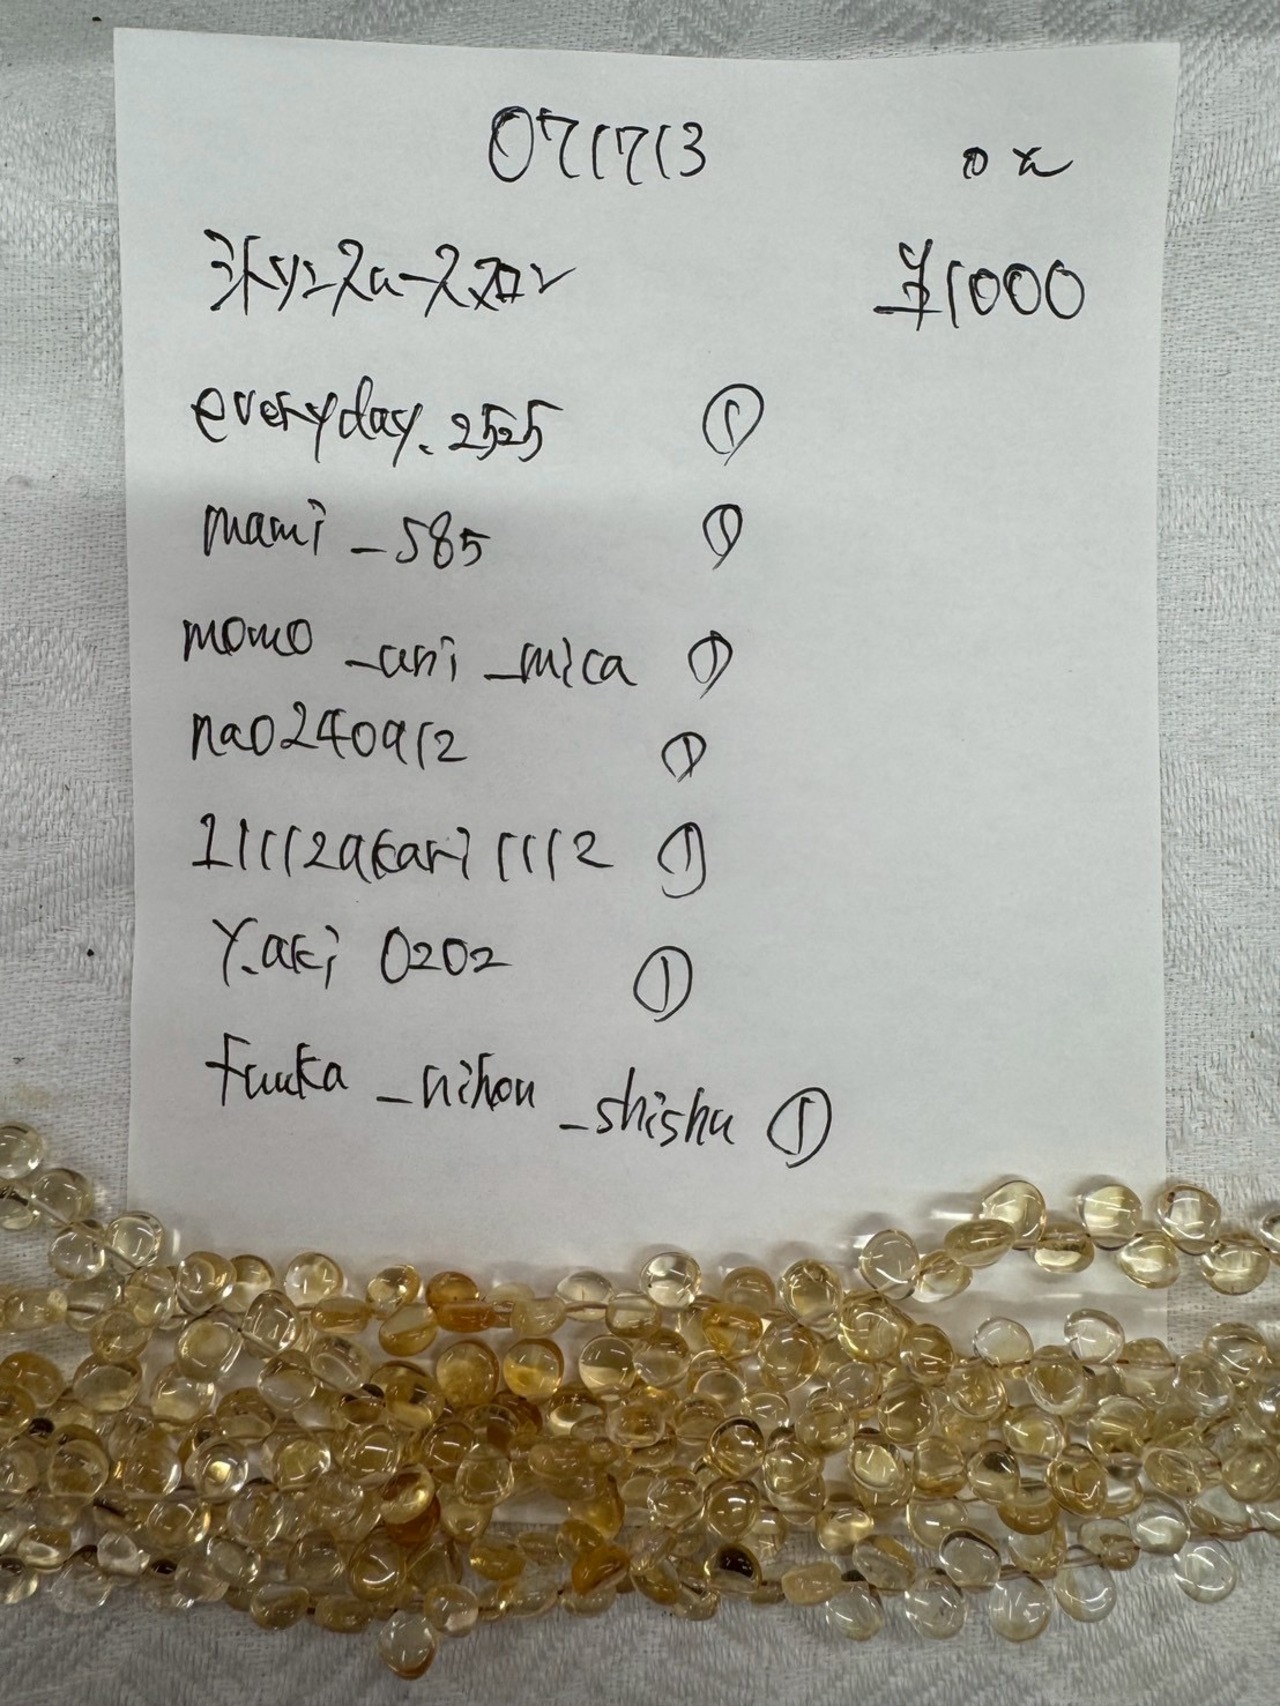 071713
¥1000
everyday.2525 ①
mami_585 ①
momo_ani_mica ①
nao240912 ①
11112akari1112 ①
Y.aki0202 ①
fuuka_nihon_shishu ①